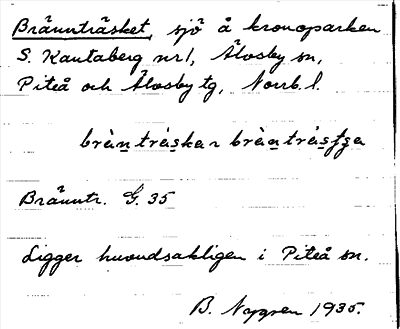 Brännträsket, sjö å kronoparken
S. Kantaberg nr 1, Älvsby sn,
Piteå och Älvsby tg, Norrb. l.
Brännt r. G. 35
Ligger huvudsakligen i Piteå sn.
B. Nygren 1935.